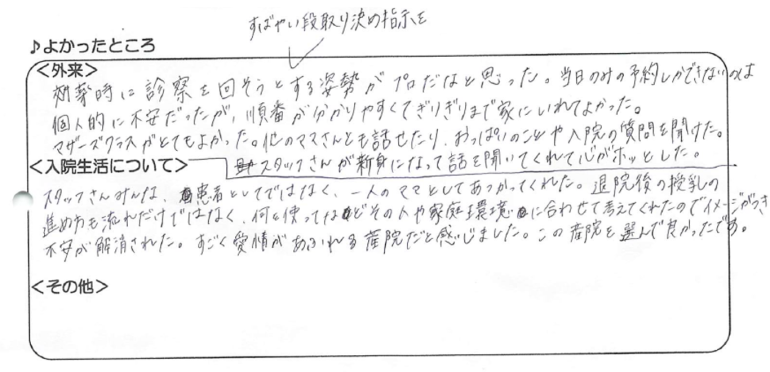 すばやい段取り決め指示を
♪よかったところ
<外来>
効率時に診察を回そうとする姿勢がプロだなと思った。当日のみの予約しかできないのは
個人的に不安だったが、順番が分かりやすくてぎりぎりまで家にいれてよかった。
マザーズクラスがとてもよかった。他のママさんとも話せたり、おっぱいのことや入院の質問を聞けた。
<入院生活について>
スタッフさんが親身になって話を聞いてくれて心がホッとした。
スタッフさんみんな、患者としてではなく、一人のママとしてあつかってくれた。退院後の授乳の
進め方も流れだけではなく、何を使ってなどその人や家庭環境に合わせて考えてくれたのでイメージがつき
不安が解消された。すごく愛情があふれる産院だと感じました。この産院を選んで良かったです。
<その他>